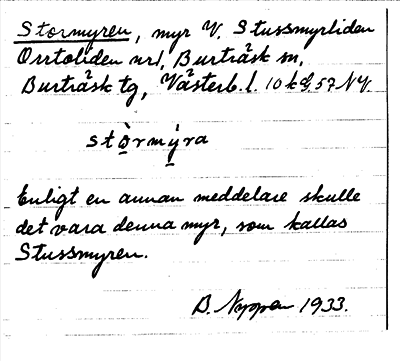 Stormyren, myr V. Stussmyrliden
Orrtoliden nr1, Burträsk sn,
Burträsk tg, Västerb. l. 10 k G, 57 NV.
stòrmýra
Enligt en annan meddelare skulle
det vara denna myr, som kallas
Stussmyren.
B. 1933.